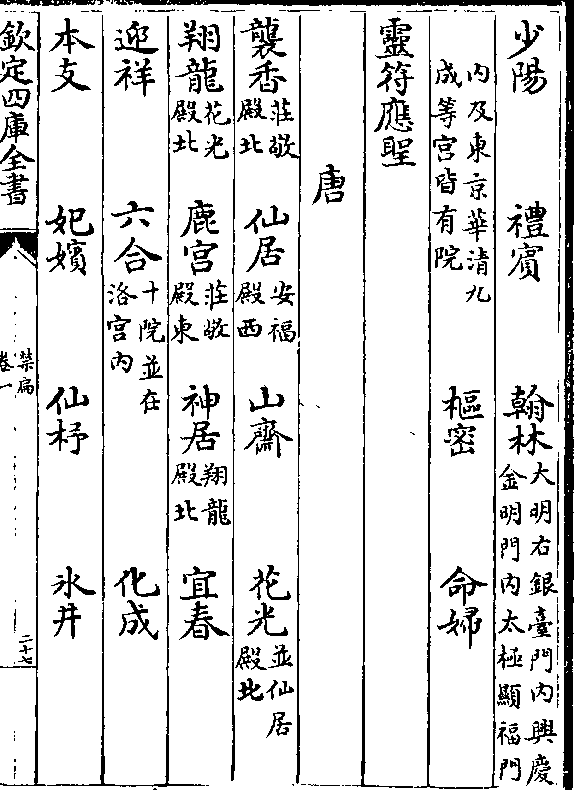 少陽　禮賓　翰林大明右銀臺門内興慶金明門内太極顯福門
内及東京華清九成等宫皆有院　樞密　命婦
靈符應聖
唐
襲香莊敬殿北　仙居安福殿西　山齋　花光並仙居殿北
翔龍花光殿北　鹿宫莊敬殿東　神居翔龍殿北　宜春
迎祥　六合十院並在洛宫内　化成
本支　妃嬪　仙杼　氷井
欽定四庫全書　禁扁卷一　二十七